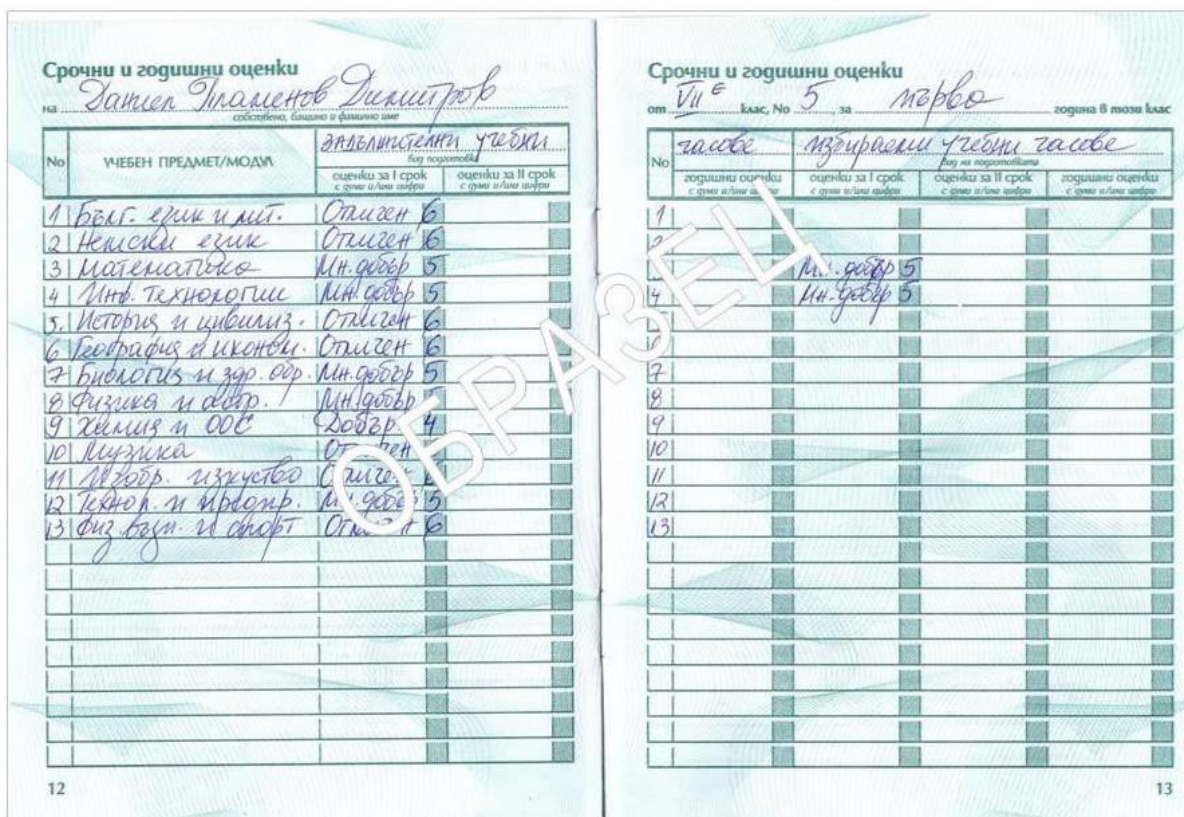 Срочни и годишни оценки
на Даниел Пламенов Димитров
собствено, бащино и фамилно име
No УЧЕБЕН ПРЕДМЕТ/МОДУЛ задължителни учебни
вид подготовка
оценки за I срок оценки за II срок
с думи и/или цифри с думи и/или цифри
1 Бълг. език и лит. Отличен 6
2 Немски език Отличен 6
3 Математика Мн. добър 5
4 Инф. технологии Мн. добър 5
5. История и цивилиз. Отличен 6
6 География и иконом. Отличен 6
7 Биология и здр. обр. Мн. добър 5
8 Физика и астр. Мн. добър 5
9 Химия и ООС Добър 4
10 Музика Отличен
11 Изобр. изкуство Отличен
12 Технол. и предпр. Мн. добър 5
13 Физ. възп. и спорт Отличен 6
12
Срочни и годишни оценки
от VII Е клас, No 5, за първа година в този клас
No часове избираеми учебни часове
вид на подготовката
годишни оценки оценки за I срок оценки за II срок годишни оценки
с думи и/или цифри с думи и/или цифри с думи и/или цифри с думи и/или цифри
1
2
Мн. добър 5
4 Мн. добър 5
5
6
7
8
9
10
11
12
13
13
ОБРАЗЕЦ